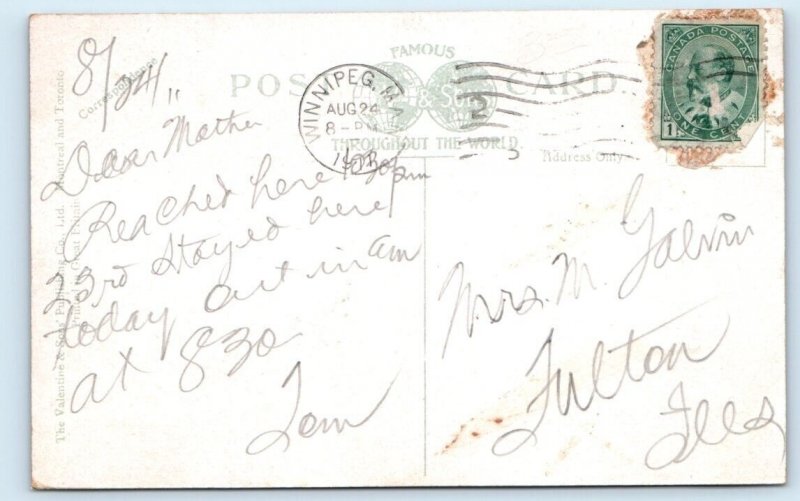 8/24"
Correspondence
Dear Mother
Reached here 1030 pm
23rd stayed here
today out in am
at 830
Tom
The Valentine & Sons' Publishing Co., Ltd. Montreal and Toronto
Printed in Great Britain
FAMOUS
POST CARD
& Sons
THROUGHOUT THE WORLD.
Address Only
WINNIPEG, MAN
AUG 24
8-PM
2
CANADA POSTAGE
1
ONE CENT
Mrs. M. Galvin
Fulton
Ills